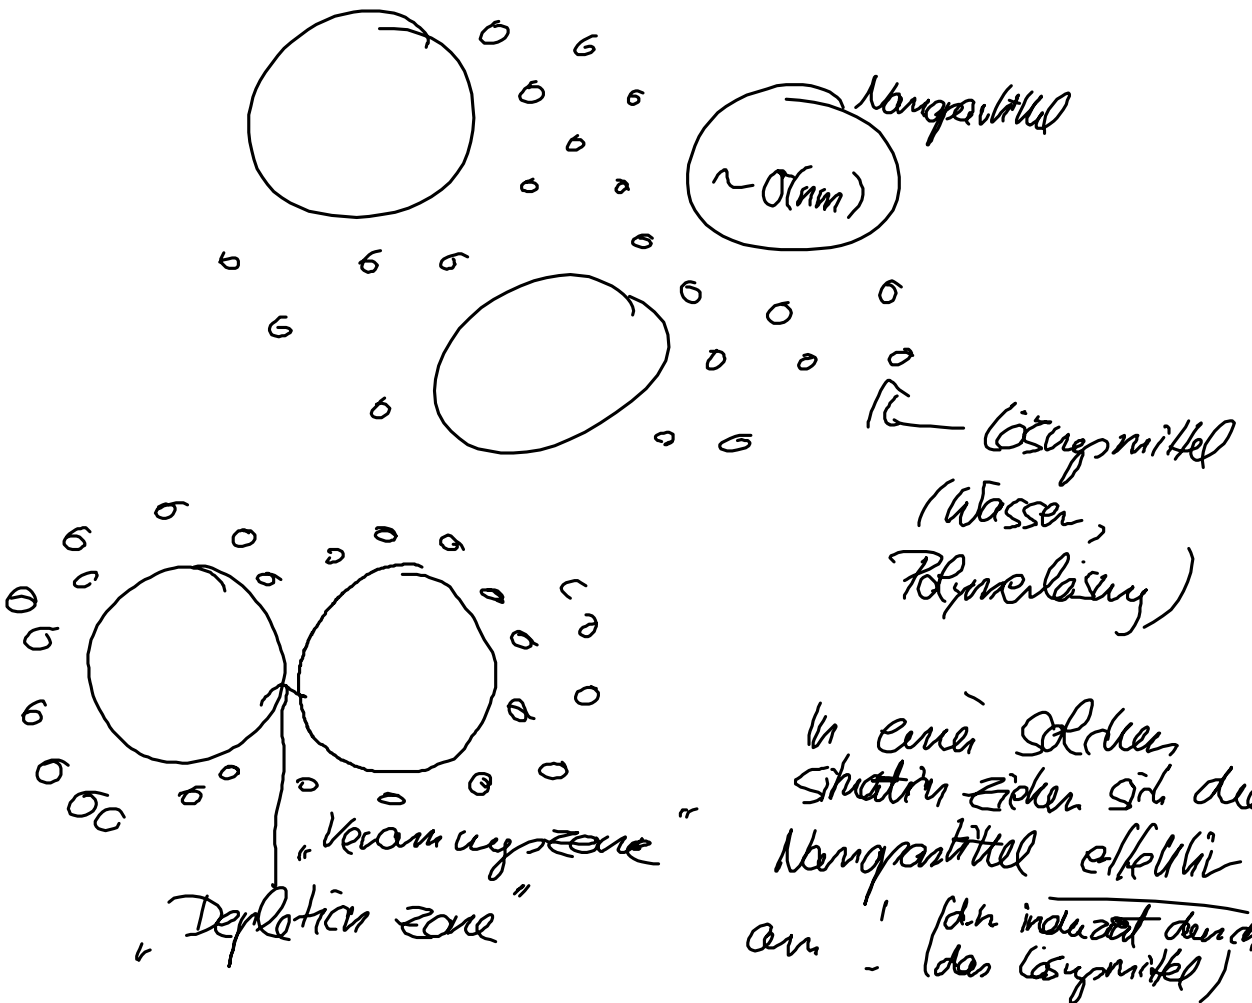 Nanopartikel
~ O(nm)
Lösungsmittel
(Wasser,
Polymerlösung)
"Verarmungszone"
"Depletion zone"
In einer solchen
Situation ziehen sich die
Nanopartikel effektiv
an! (d.h. induziert durch
das Lösungsmittel)